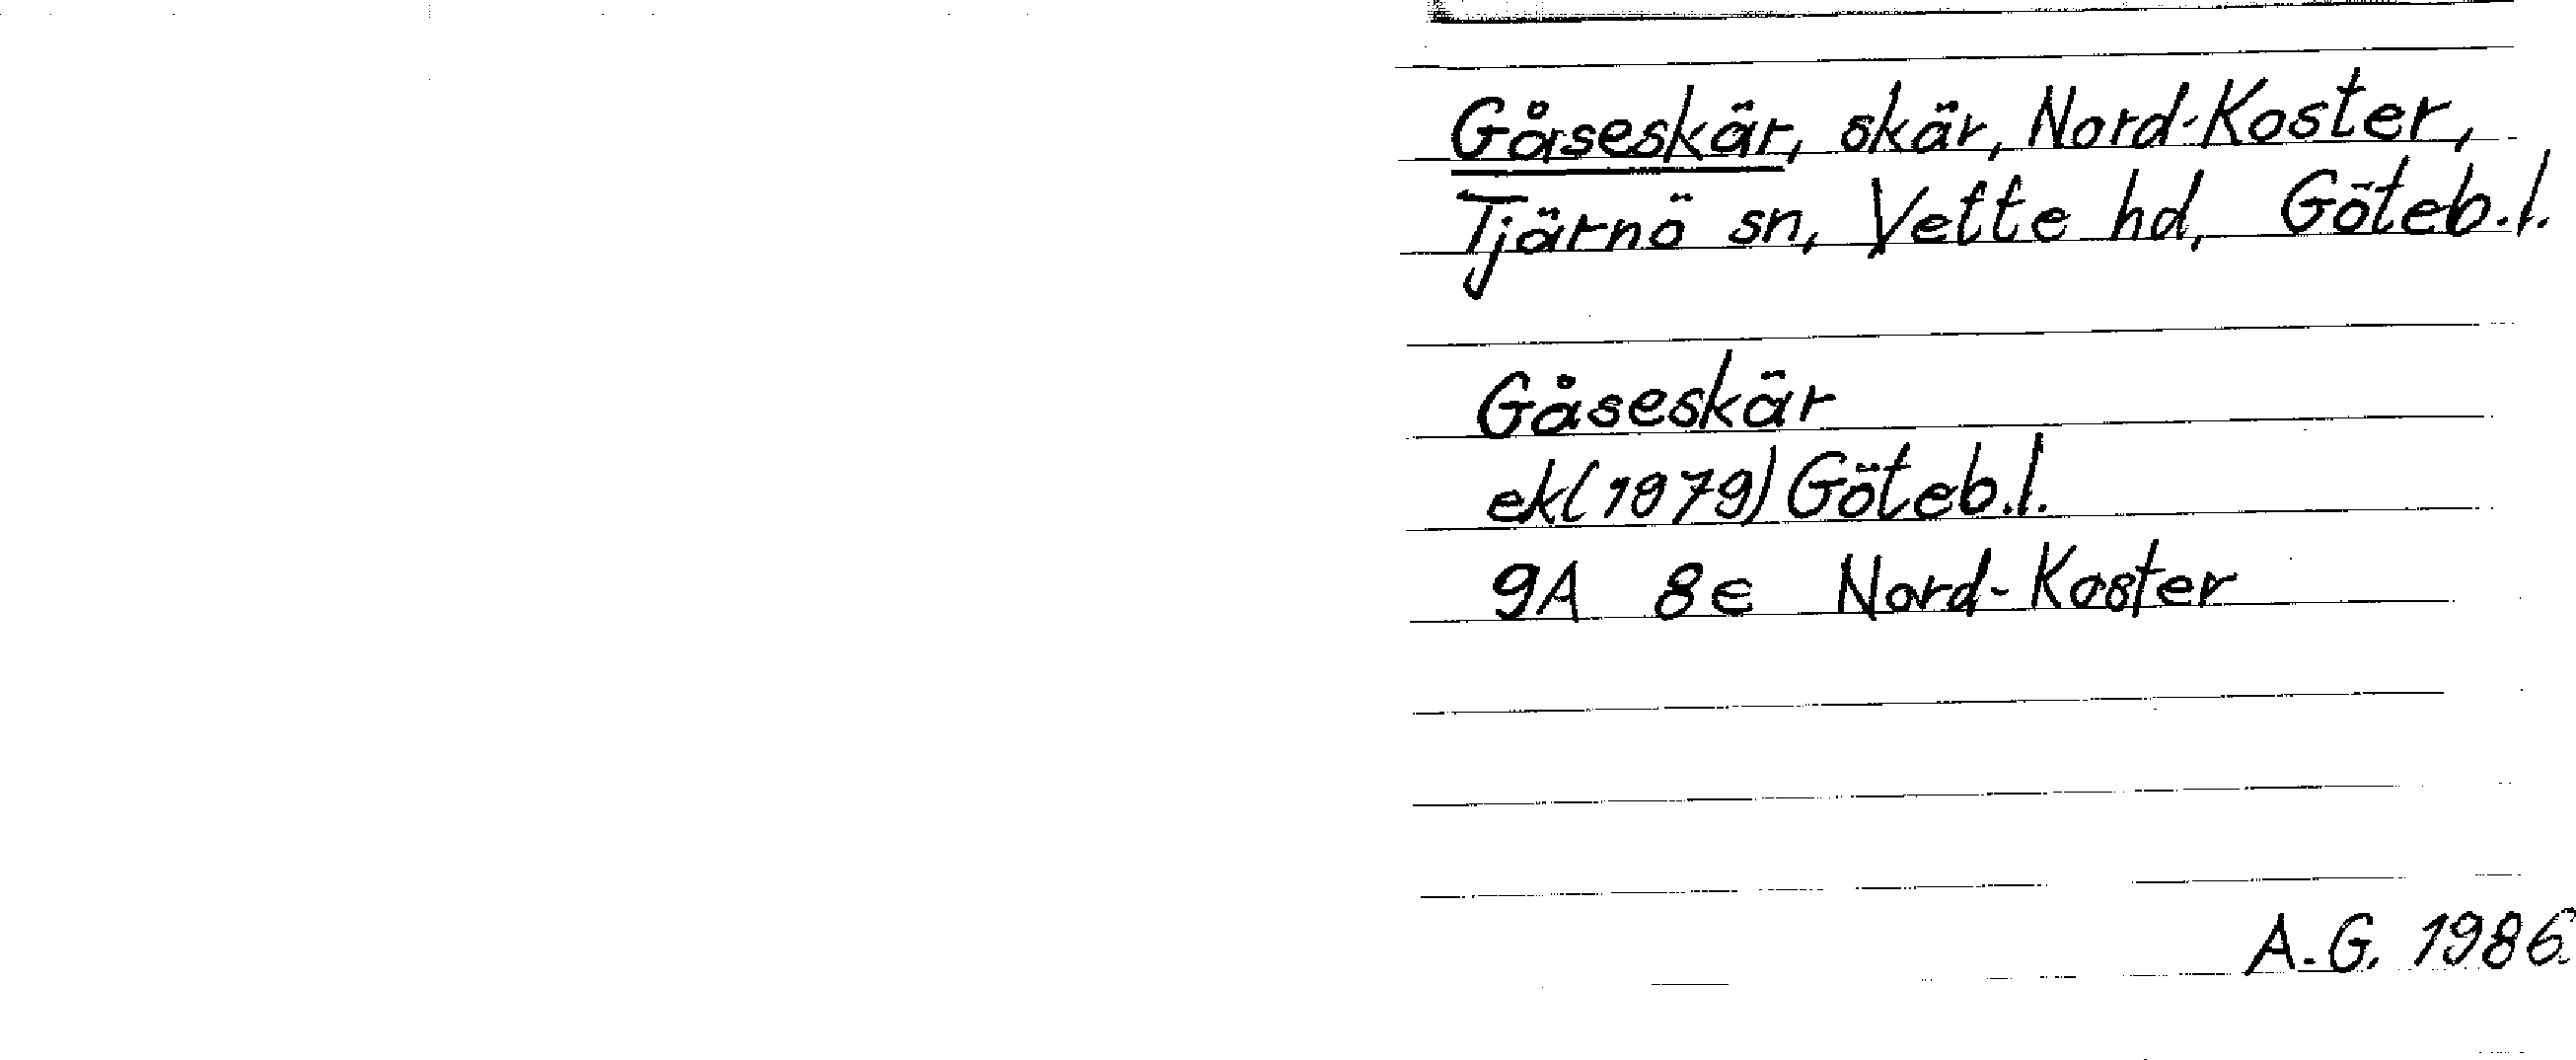 Gåseskär, skär, Nord-Koster,
Tjärnö sn, Vette hd, Göteb.l.
Gåseskär
ek(1979) Göteb.l.
9A 8e Nord-Koster
A.G. 1986